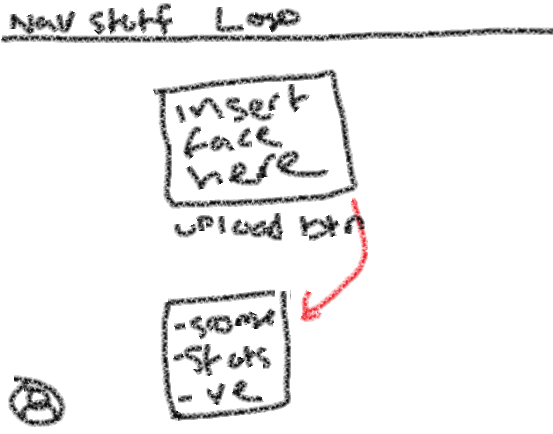 Nav stuff Logo
insert
face
here
upload btn
-some
-stats
- ve